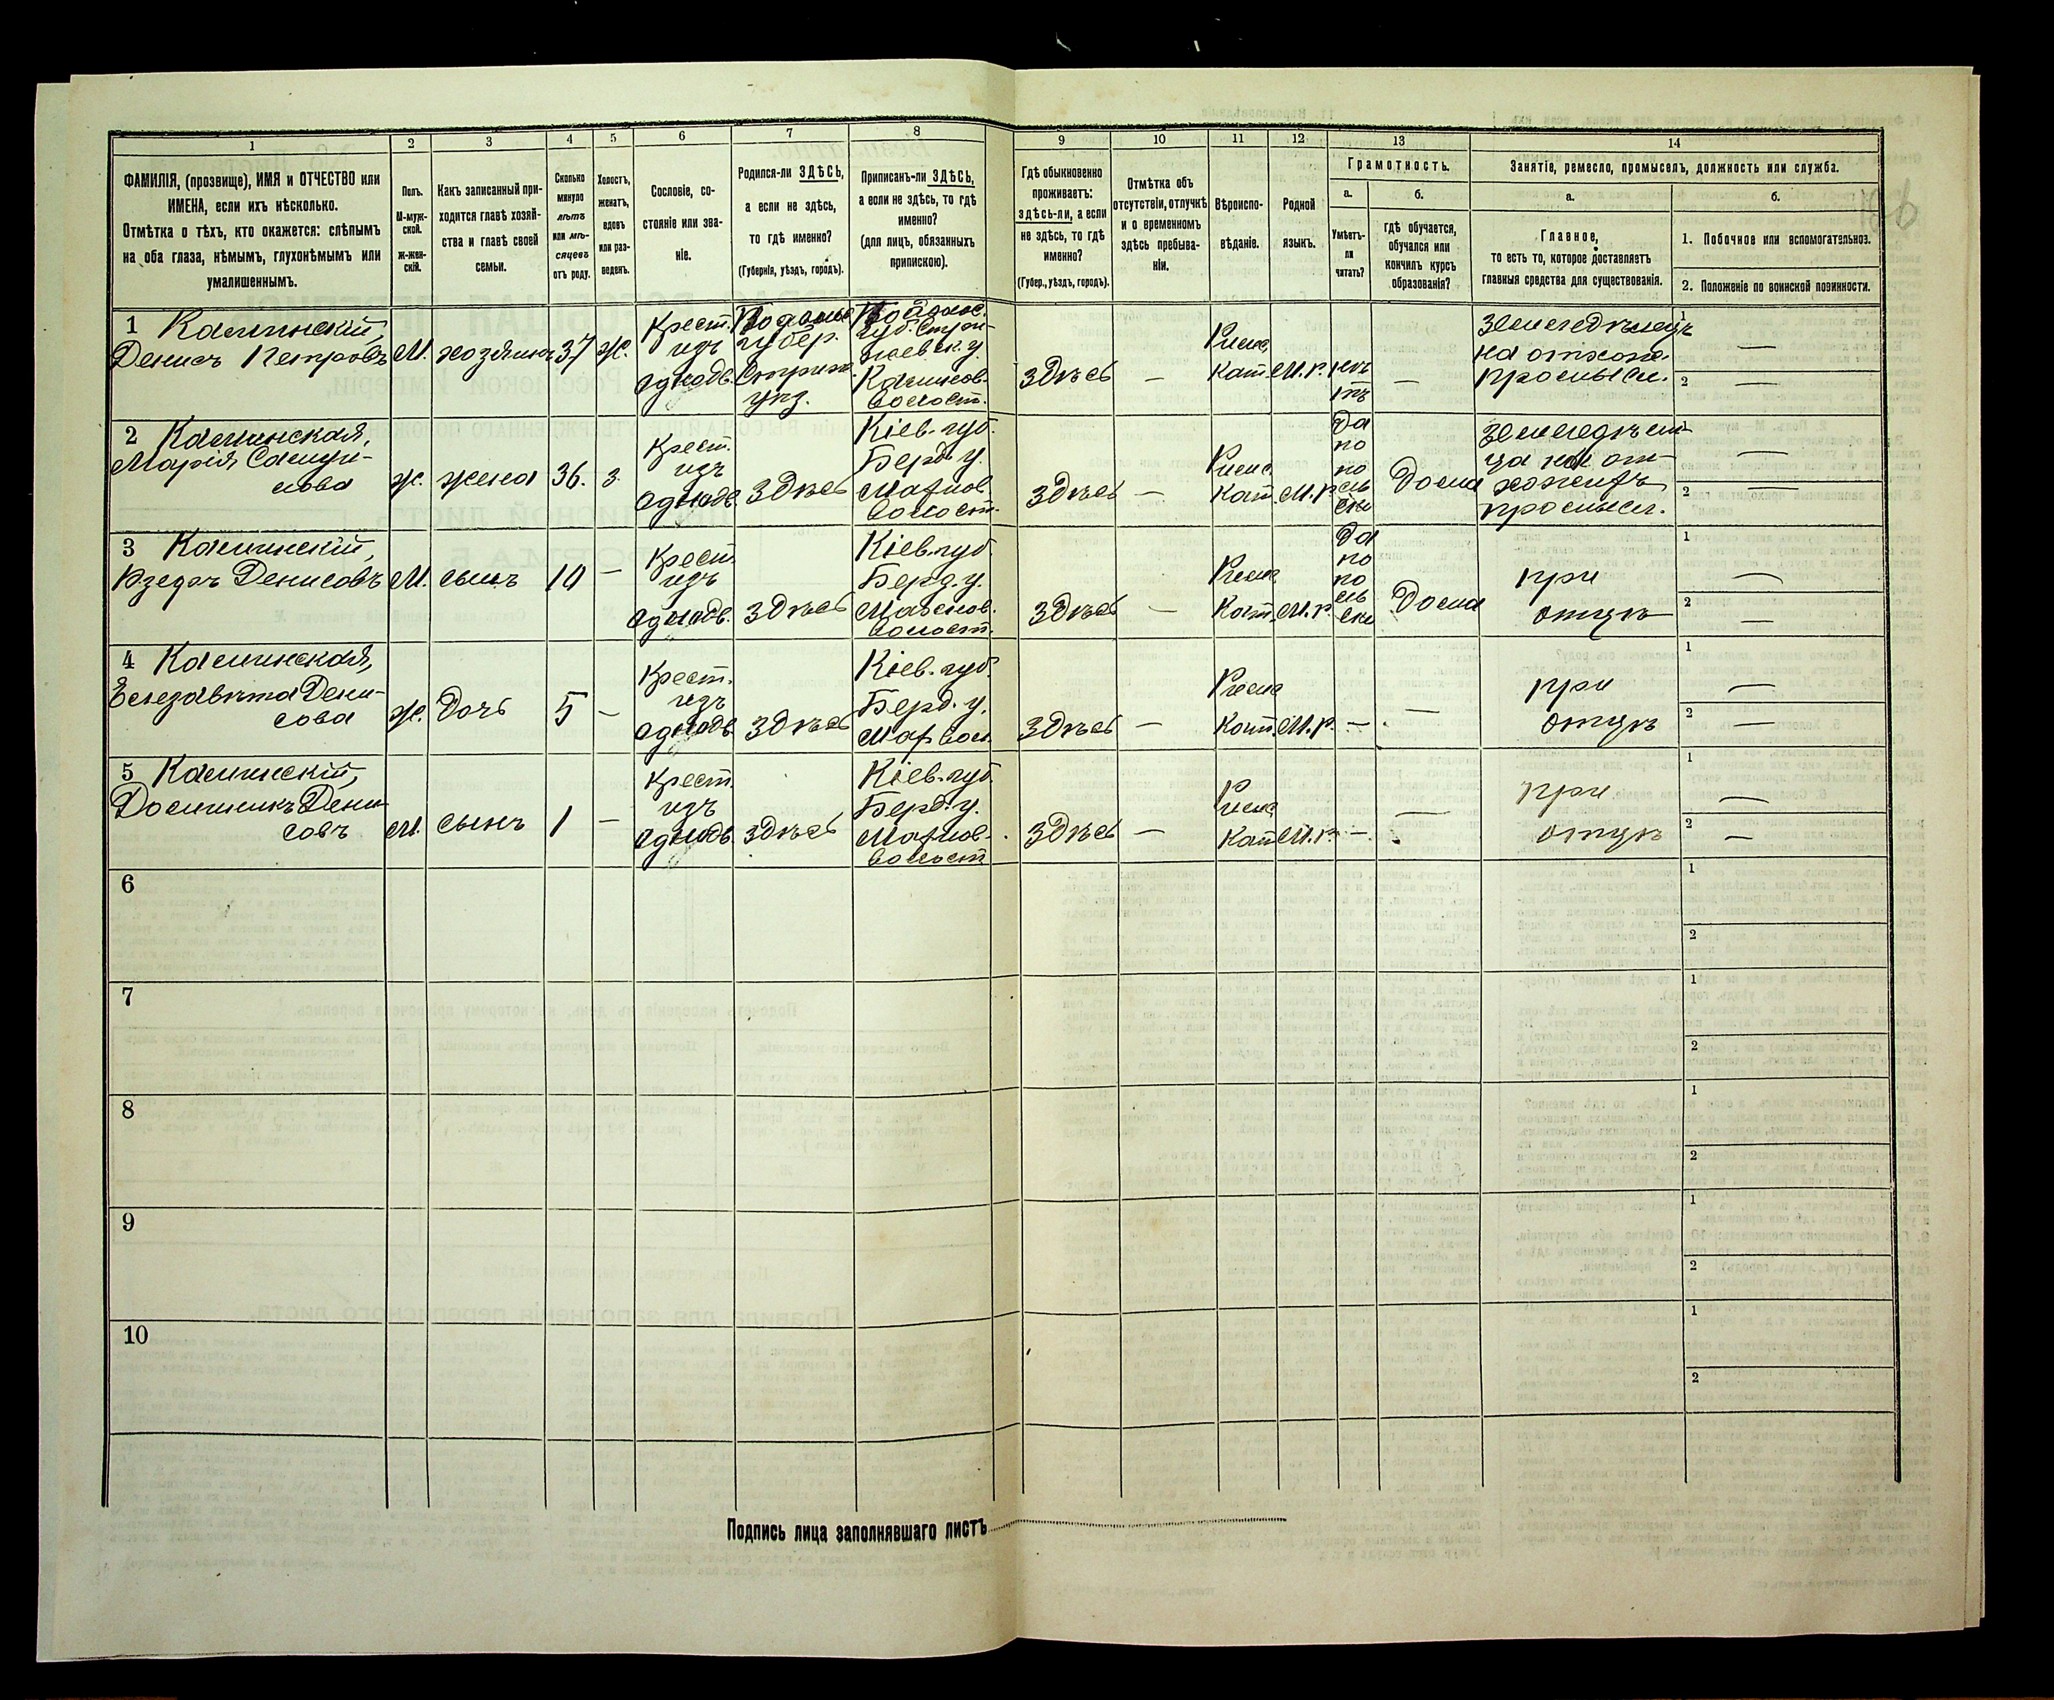 1
2
3
4
5
6
7
8
9
10
11
12
13
14
ФАМИЛІЯ, (прозвище), ИМЯ и ОТЧЕСТВО или
ИМЕНА, если ихъ нѣсколько.
Отмѣтка о тѣхъ, кто окажется: слѣпымъ
на оба глаза, нѣмымъ, глухонѣмымъ или
умалишеннымъ.
Полъ.
М-муж-
ской.
ж-жен-
скій.
Какъ записанный при-
ходится главѣ хозяй-
ства и главѣ своей
семьи.
Сколько
минуло
лѣтъ
или мѣ-
сяцевъ
отъ роду.
Холостъ,
женатъ,
вдовъ
или раз-
веденъ.
Сословіе, со-
стояніе или зва-
ніе.
Родился-ли ЗДѢСЬ,
а если не здѣсь,
то гдѣ именно?
(Губернія, уѣздъ, городъ).
Приписанъ-ли ЗДѢСЬ,
а если не здѣсь, то гдѣ
именно?
(для лицъ, обязанныхъ
припискою).
Гдѣ обыкновенно
проживаетъ:
здѣсь-ли, а если
не здѣсь, то гдѣ
именно?
(Губер., уѣздъ, городъ).
Отмѣтка объ
отсутствіи, отлучкѣ
и о временномъ
здѣсь пребыва-
ніи.
Вѣроиспо-
вѣданіе.
Родной
языкъ.
Грамотность.
а.
б.
Умѣетъ-
ли
читать?
гдѣ обучается,
обучался или
кончилъ курсъ
образованія?
Занятіе, ремесло, промыселъ, должность или служба.
а.
б.
Главное,
то есть то, которое доставляетъ
главныя средства для существованія.
1. Побочное или вспомогательное.
2. Положеніе по воинской повинности.
1 Калинскій,
Денисъ Петровъ
М.
хозяинъ
37
ж.
Крест.
изъ
однодв.
Подольс.
губер.
уѣз.
Подольс.
Калинов.
волост.
Здѣсь
—
Римс.
кат.
М.р.
нѣ
тъ
—
Земледѣлецъ
на отхож.
промысл.
1 —
2 —
2 Калинская,
Марія Самуи-
лова
ж.
жена
36.
з.
Крест.
изъ
однодв.
Здѣсь
Кіев. губ.
Берд. у.
Махнов.
волост.
Здѣсь
—
Римс.
кат.
М.р.
Да
по
по
ль
ски
Дома
на от-
хожихъ
промысл.
1 —
2 —
3 Калинскій,
Денисовъ
М.
сынъ
10
—
Крест.
изъ
однодв.
Здѣсь
Кіев. губ.
Берд. у.
Махнов.
волост.
Здѣсь
—
Римс.
Кат.
М.р.
Да
по
по
ль
ски
Дома
при
отцѣ
1 —
2 —
4 Калинская,
Елизавета Дени-
сова
ж.
дочь
5
—
Крест.
изъ
однодв.
Здѣсь
Кіев. губ.
Берд. у.
Мах. вол.
Здѣсь
—
Римс.
Кат.
М.р.
—
—
при
отцѣ
1 —
2 —
5 Калинскій,
Доминикъ Дени
совъ
М.
сынъ
1
—
Крест.
изъ
однодв.
Здѣсь
Кіев. губ.
Берд. у.
Махнов.
волост.
Здѣсь
—
Римс.
Кат.
М.р.
—
—
при
отцѣ
1 —
2 —
6
1
2
7
1
2
8
1
2
9
1
2
10
1
2
Подпись лица заполнявшаго листъ